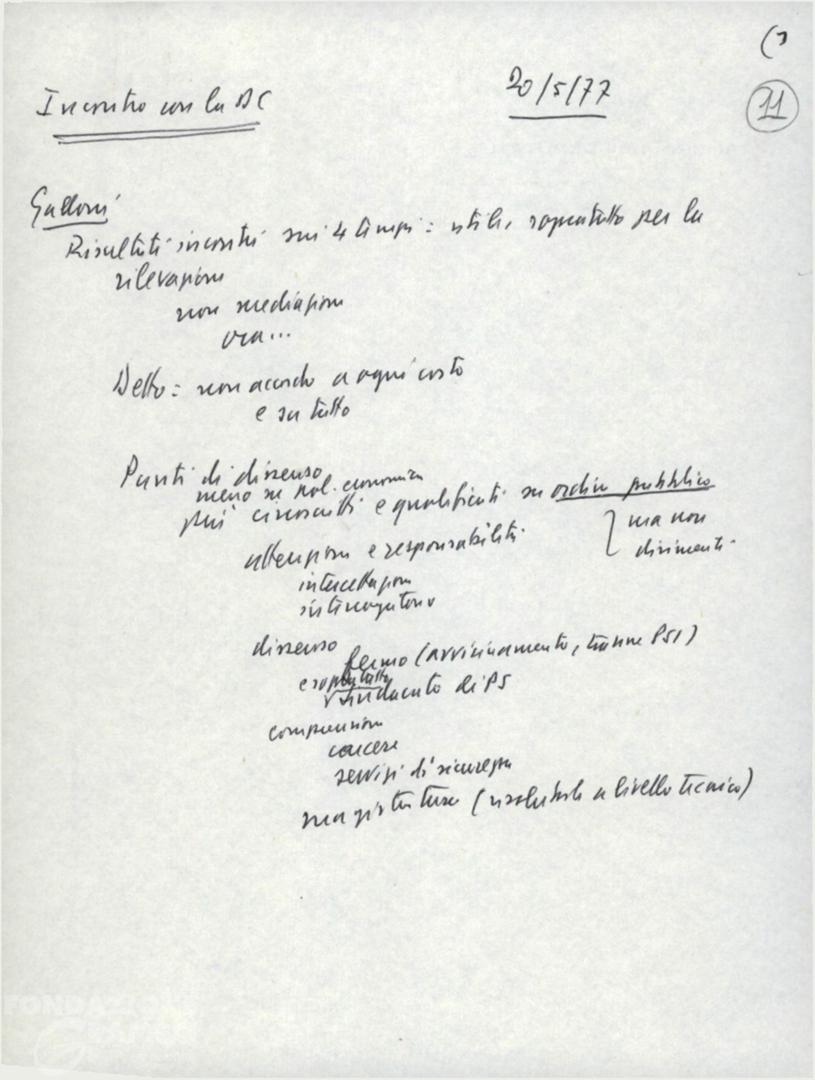 (1
Incontro con la DC
20/5/77
11
Galloni
Risultati incontri sui 4 temi = utili, soprattutto per la
rilevazione
non mediazioni
ora...
Detto = non accordo a ogni costo
e su tutto
Punti di dissenso
meno su pol. economica
più circoscritti e qualificati su ordine pubblico
ma non
dirimenti
attenzioni e responsabilità
intercettazioni
interrogatorio
dissenso
fermo (avvicinamento, tranne PSI)
e soprattutto
sindacato di PS
comprensioni
carcere
servizi di sicurezza
magistratura (risolubile a livello tecnico)
FONDAZIONE